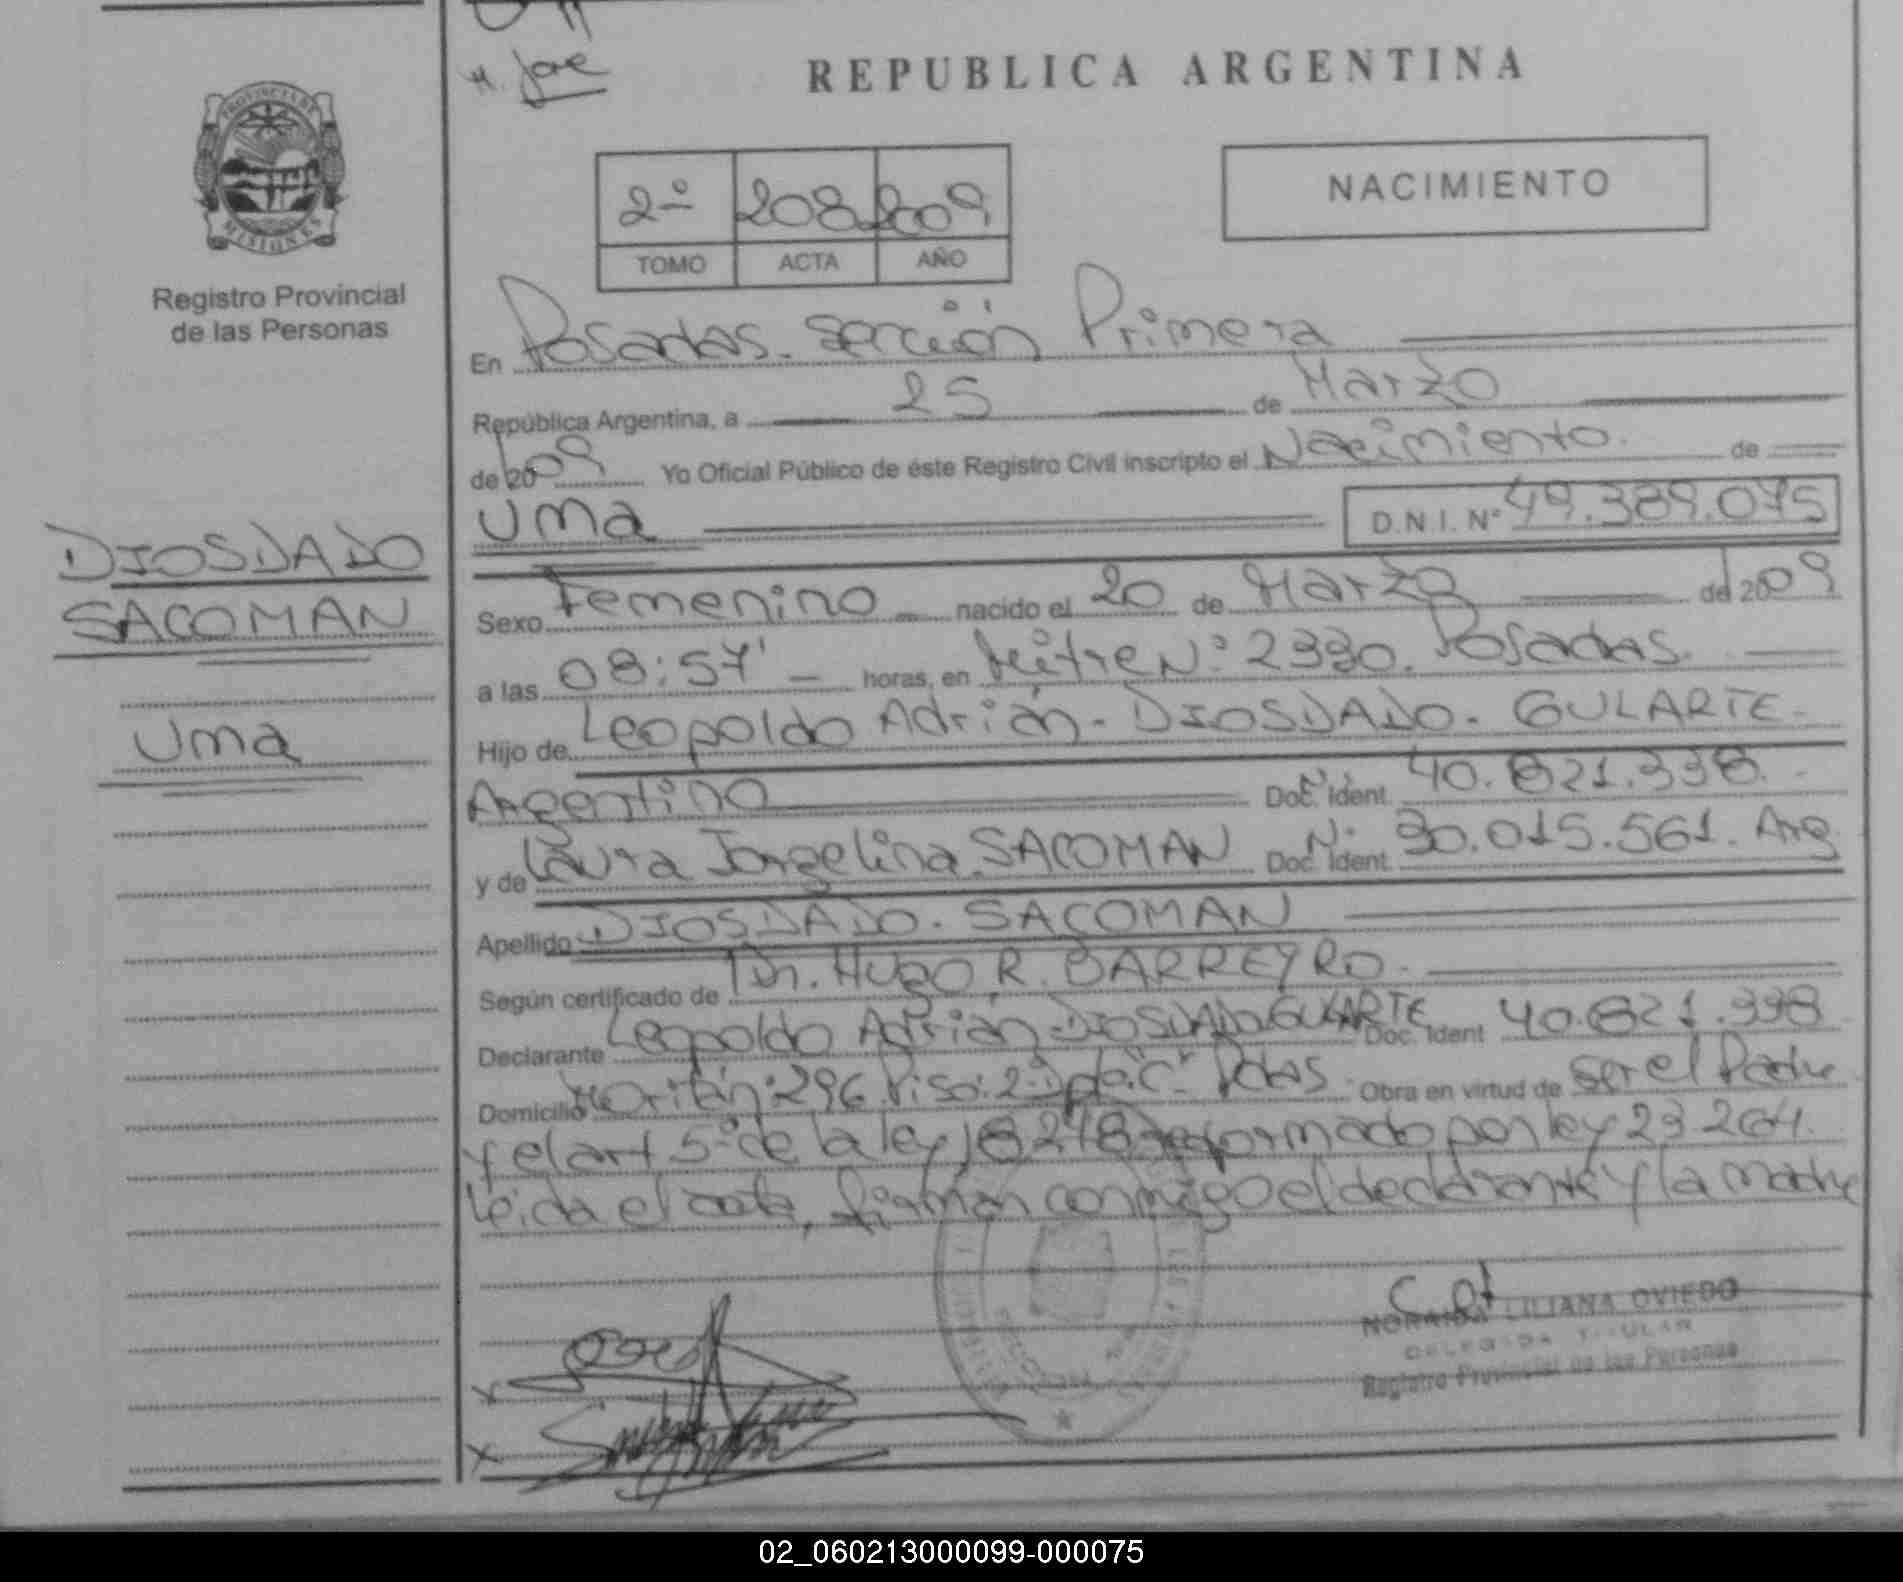 H. Jose
REPUBLICA ARGENTINA
PROVINCIA DE
MISIONES
Registro Provincial
de las Personas
2º 208 2009
TOMO ACTA AÑO
NACIMIENTO
En Posadas. Sección Primera
República Argentina, a 25 de Marzo
de 2009 Yo Oficial Público de éste Registro Civil inscripto el Nacimiento. de
Uma D.N.I. Nº 49.389.075
DIOSDADO
SACOMAN
Uma
Sexo Femenino nacido el 20 de Marzo del 2009
a las 08:57' horas, en Mitre Nº 2330. Posadas.
Hijo de Leopoldo Adrián - DIOSDADO. GULARTE -
Argentino Doc. Ident. Nº 40.821.338.
y de Laura Jorgelina. SACOMAN Doc. Ident. Nº 30.015.561. Arg
Apellido DIOSDADO. SACOMAN
Según certificado de Dr. Hugo R. BARREYRO.
Declarante Leopoldo Adrián DIOSDADO GULARTE Doc. Ident 40.821.338
Domicilio 296. Piso: 2º Dpto. "C" Pdas. Obra en virtud de ser el Padre
y el art 5º de la ley 18248 reformado por ley 23264.
Leida el acta, firman conmigo el declarante y la madre
NORAIDA LILIANA OVIEDO
DELEGADA TITULAR
Registro Provincial de las Personas
x
x
02_060213000099-000075